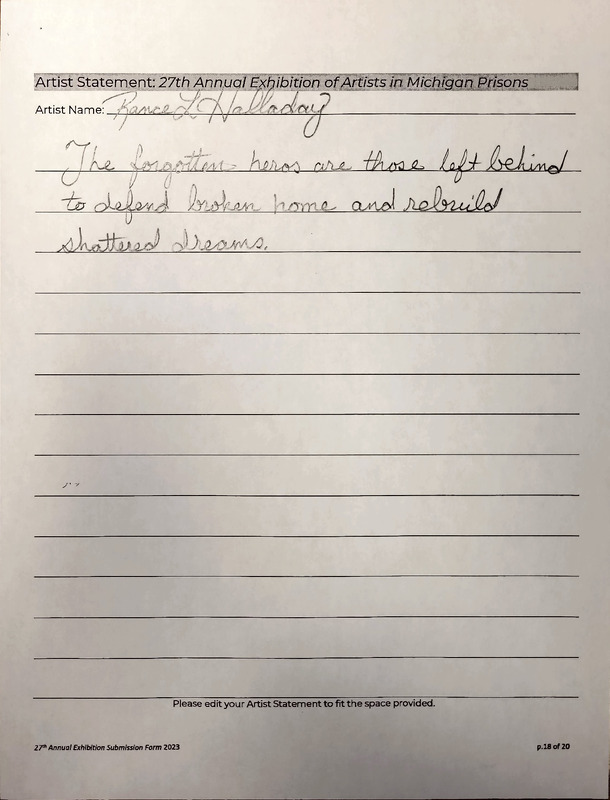 Artist Statement: 27th Annual Exhibition of Artists in Michigan Prisons
Artist Name: Rance L Halladay
The forgotten heros are those left behind
to defend broken home and rebuild
shattered dreams.
Please edit your Artist Statement to fit the space provided.
27th Annual Exhibition Submission Form 2023 p.18 of 20